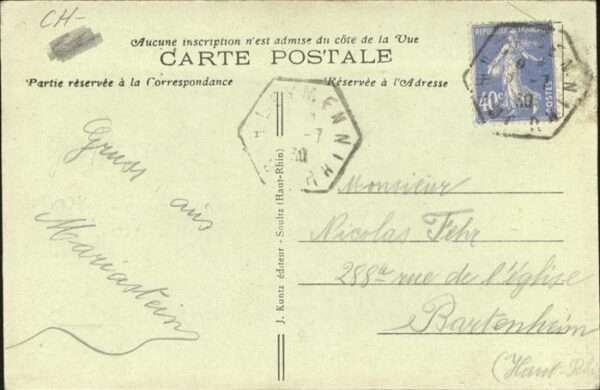 CH-
Aucune inscription n'est admise du côté de la Vue
CARTE POSTALE
Partie réservée à la Correspondance
Réservée à l'Adresse
RÉPUBLIQUE FRANÇAISE
40c
POSTES
30
-7
30
Gruss aus
Mariastein
J. Kuntz éditeur - Soultz (Haut-Rhin)
Monsieur
Nicolas Fehr
288a rue de l'église
Bartenheim
(Haut-Rhin